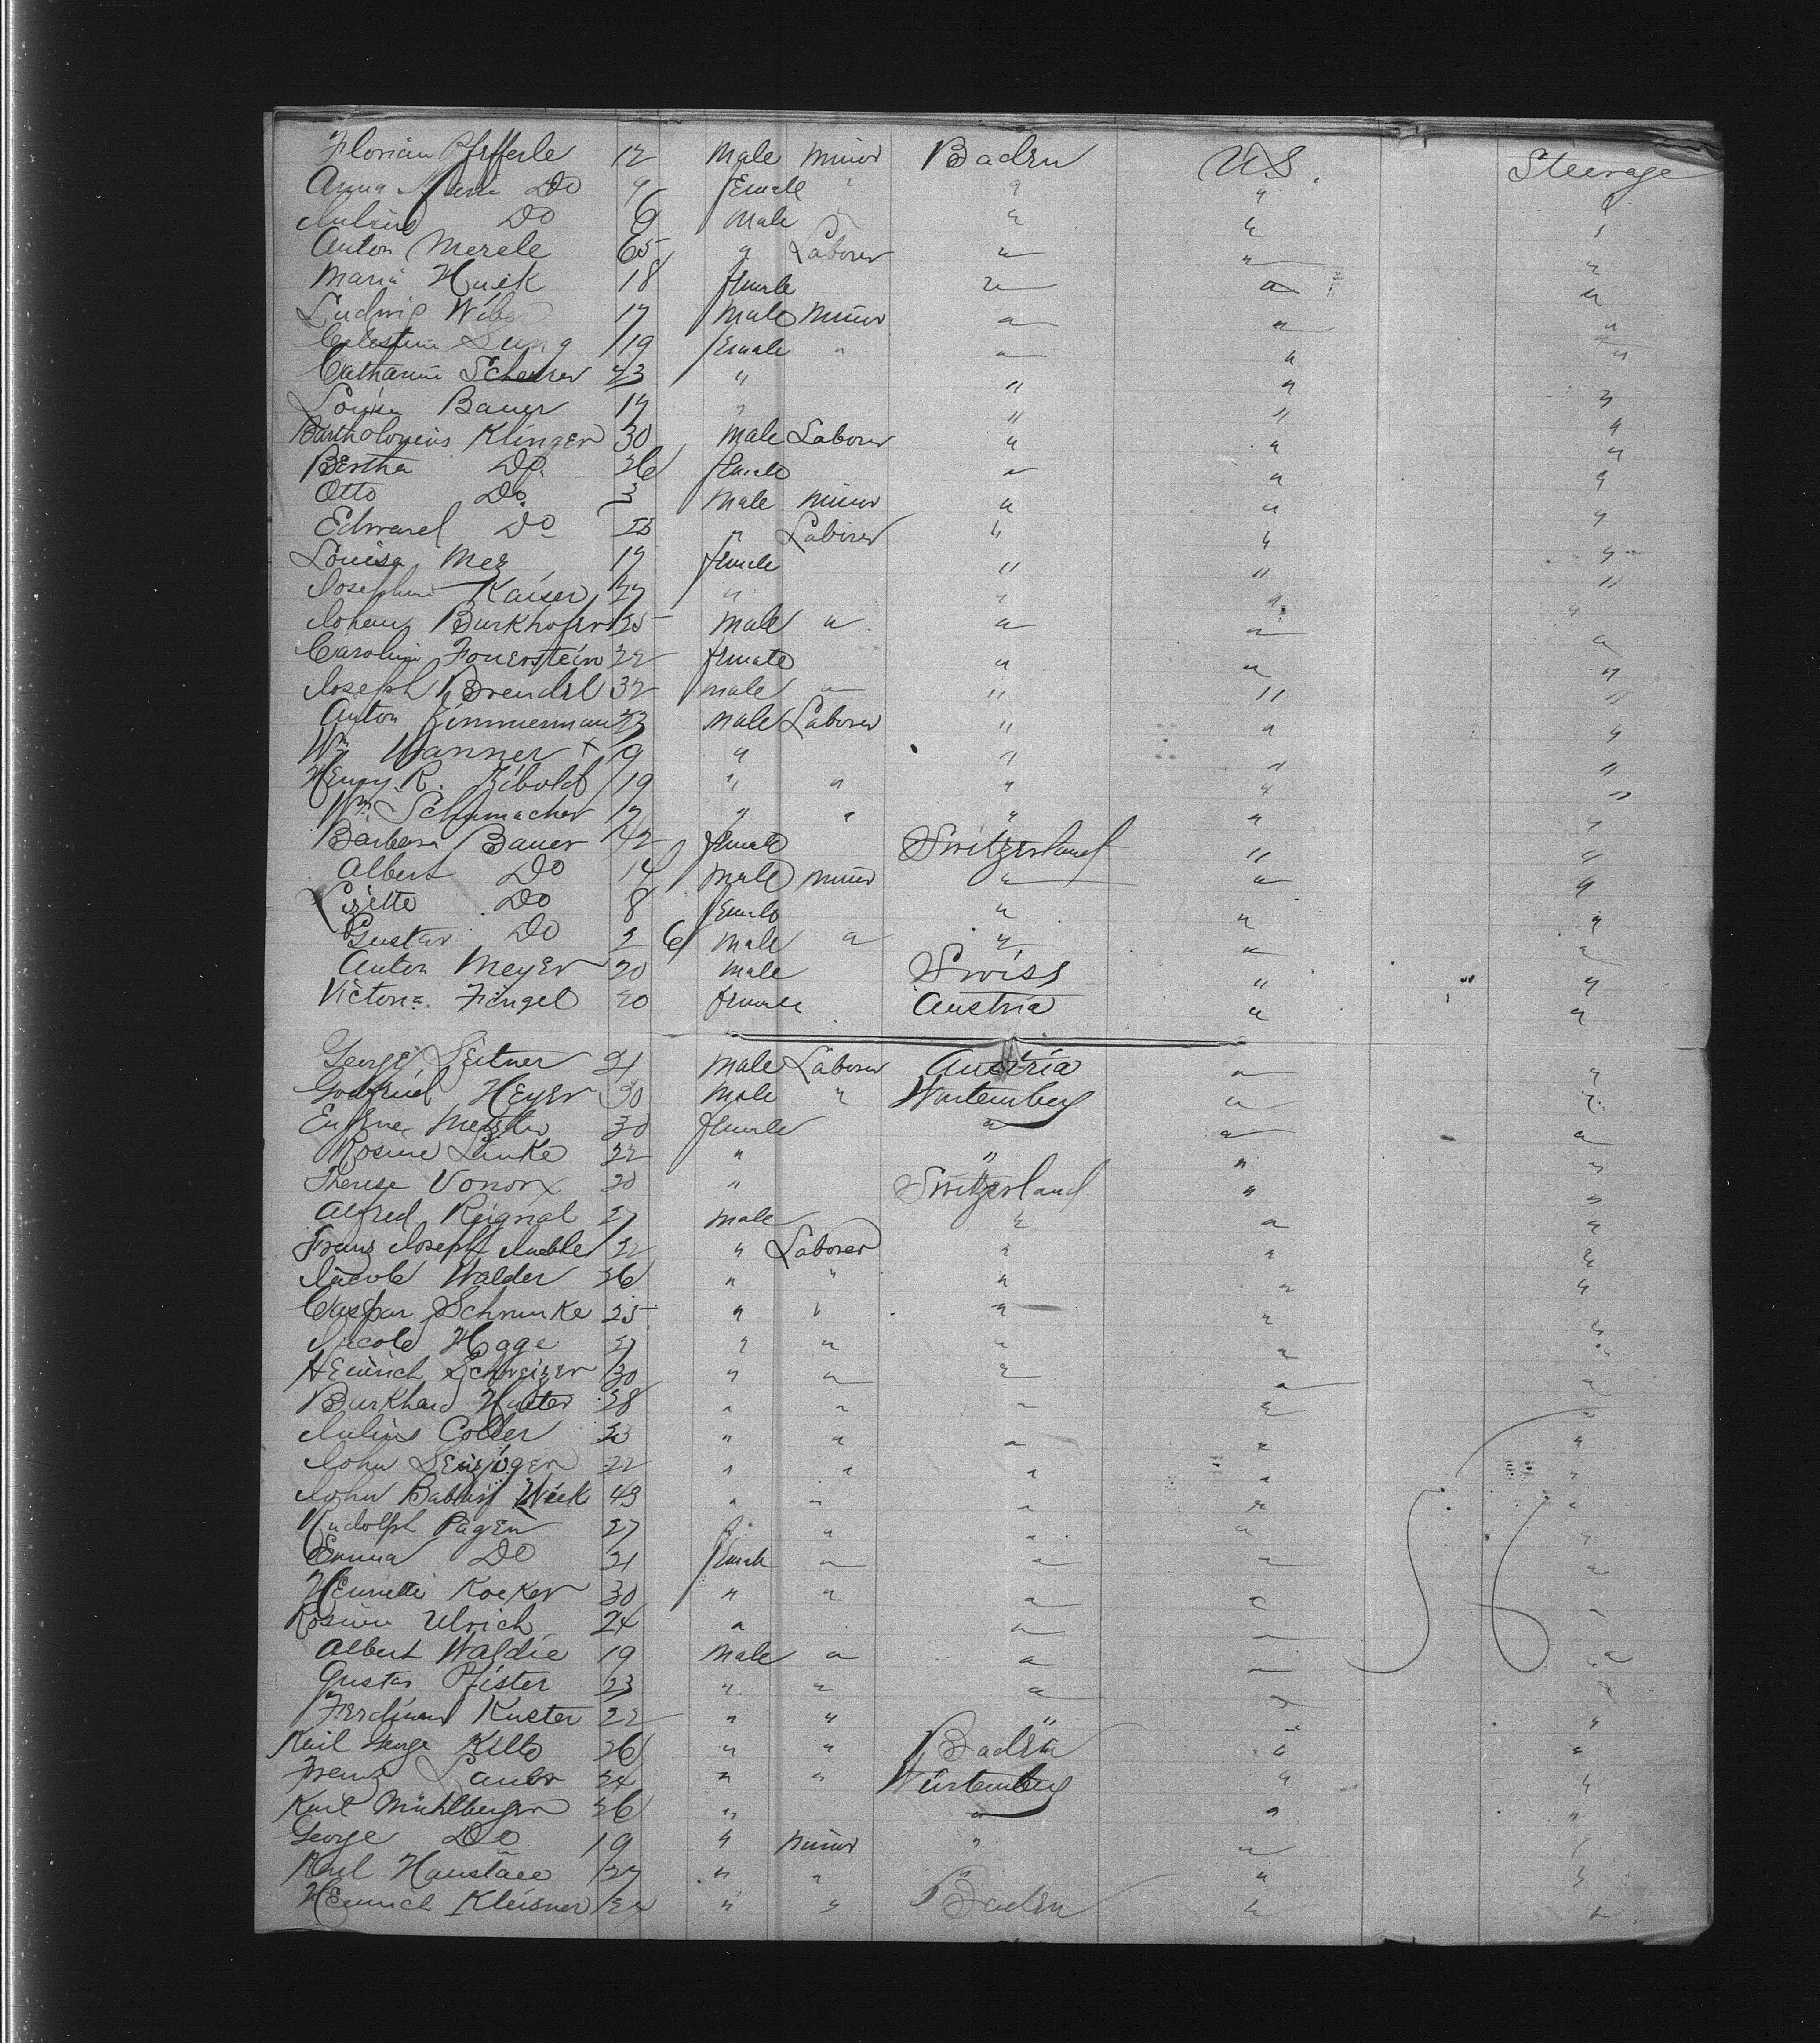 Florian Pfefferle 12 Male Minor Baden U.S. Steerage
Anna Maria Do 9 female " " " "
Julius Do 6 Male " " "
Anton Merele 65 " Laborer " " "
Maria Huck 18 female " " "
Ludwig Weber 17 Male Minor " " "
Celestine Jung 19 female " " " "
Catharine Scheurer 23 " " " "
Louisa Bauer 17 " " " "
Bartholomeus Klinger 30 Male Laborer " " "
Bertha Do 26 female " " "
Otto Do. 3 Male Minor " " "
Edward Do 23 " Laborer " " "
Louisa Mez 17 female " " "
Josephine Kaiser 27 " " " "
Johann Burkhofer 35 Male " " " "
Caroline Fouerstein 22 female " " "
Joseph Brendel 32 male " " " "
Anton Zimmerman 23 Male Laborer " " "
Wm Wanner x 19 " " " "
Henry R. Zibold 19 " " " " "
Wm Schumacher 17 " " " " "
Barbara Bauer 42 female Switzerland " "
Albert Do 14 Male Minor " " "
Lisette Do 8 female " " "
Gustav Do 2 6 Male " " " "
Anton Meyer 20 Male Swiss " "
Victoria Fingel 20 female Austria " "
George Leitner 21 Male Laborer Austria " "
Gottfried Heyer 30 Male " Wurtemberg " "
Eugene Metzler 30 female " " "
Rosine Linke 22 " " " "
Therese Vonor 20 " Switzerland " "
Alfred Reignal 27 Male " " "
Franz Joseph 22 " Laborer " " "
Jacob Walder 26 " " " " "
Caspar Schrunke 25 " " " " "
Jacob Hage 27 " " " " "
Heinrich Schweizer 30 " " " " "
Burkhard Huster 28 " " " " "
Julius Coller 23 " " " " "
John 22 " " " " "
John Baptist Wick 43 " " " " "
Rudolph Pagen 27 " " " " "
Emma Do 21 female " " " "
Henriette Kocker 30 " " " " "
Rosine Ulrich 24 " " " "
Albert Waldie 19 Male " " " "
Gustav Pfister 23 " " " " "
Ferdinand Kuster 22 " " " " "
Karl George Kilto 26 " " Baden " "
Franz Laubr 24 " " Würtemberg " "
Karl Mühlberger 26 " " " "
George Do 19 " Minor " " "
Karl 27 " " " "
Heinrich Kleisner 24 " " Baden " "